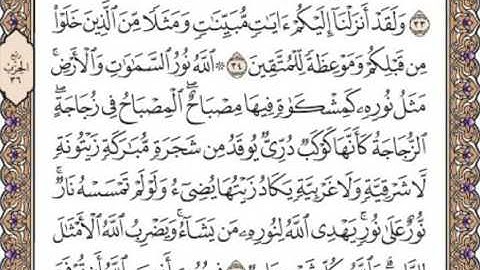 ٣٣ وَلَقَدْ أَنزَلْنَآ إِلَيْكُمْ ءَايَٰتٍ مُّبَيِّنَٰتٍ وَمَثَلًا مِّنَ ٱلَّذِينَ خَلَوْا۟
مِن قَبْلِكُمْ وَمَوْعِظَةً لِّلْمُتَّقِينَ ٣٤ ۞ ٱللَّهُ نُورُ ٱلسَّمَٰوَٰتِ وَٱلْأَرْضِ ۚ
مَثَلُ نُورِهِۦ كَمِشْكَوٰةٍ فِيهَا مِصْبَاحٌ ۖ ٱلْمِصْبَاحُ فِى زُجَاجَةٍ ۖ
ٱلزُّجَاجَةُ كَأَنَّهَا كَوْكَبٌ دُرِّىٌّ يُوقَدُ مِن شَجَرَةٍ مُّبَٰرَكَةٍ زَيْتُونَةٍ
لَّا شَرْقِيَّةٍ وَلَا غَرْبِيَّةٍ يَكَادُ زَيْتُهَا يُضِىٓءُ وَلَوْ لَمْ تَمْسَسْهُ نَارٌ ۚ
نُّورٌ عَلَىٰ نُورٍ ۗ يَهْدِى ٱللَّهُ لِنُورِهِۦ مَن يَشَآءُ ۚ وَيَضْرِبُ ٱللَّهُ ٱلْأَمْثَٰلَ
ربع
الحزب
٣٦